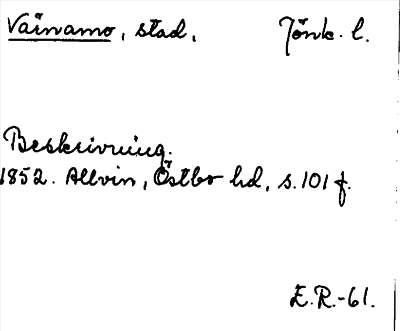 Värnamo, stad, Jönk. l.
Beskrivning.
1852. Allvin, Östbo hd, s. 101 f.
E.R.-61.